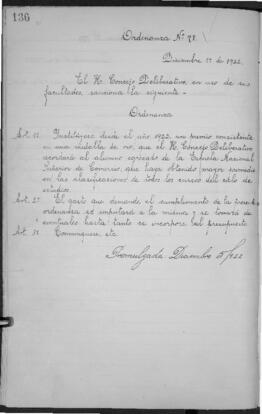 136
Ordenanza Nº 78.
Diciembre 1º de 1922.
El H. Consejo Deliberativo, en uso de sus
facultades, sanciona la siguiente -
Ordenanza
Art. 1º Institúyese desde el año 1922, un premio consistente
en una medalla de oro, que el H. Consejo Deliberativo
acordará al alumno egresado de la Escuela Nacional
Superior de Comercio, que haya obtenido mayor promedio
en las clasificaciones de todos los cursos del ciclo de
estudios.
Art. 2º El gasto que demande el cumplimiento de la presente
ordenanza se imputará a la misma y se tomará de
eventuales hasta tanto se incorpore al presupuesto
Art. 3º Comuníquese, etc.
Promulgada Diciembre 5/922